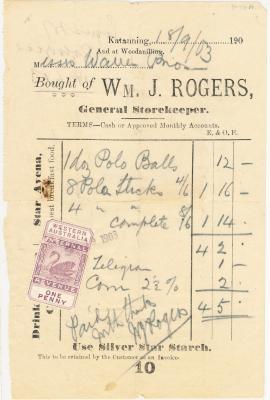 Katanning, 18/9/03 190
And at Woodanilling.
Messrs Warren Bros
Bought of WM. J. ROGERS,
General Storekeeper.
TERMS—Cash or Approved Monthly Accounts.
E. & O. E.
1 doz Polo Balls 12 —
8 Polo Sticks 4/6 1 16 —
4 " " complete 8/6 1 14 .
4 2 .
Telegram 1 -
Com 2½% 2 .
4 5 .
Paid
with thanks
WJ Rogers
Drink
Star Avena,
best breakfast food.
WESTERN AUSTRALIA
INTERNAL
REVENUE
ONE PENNY
1903
Use Silver Star Starch.
This to be retained by the Customer as an Invoice
10